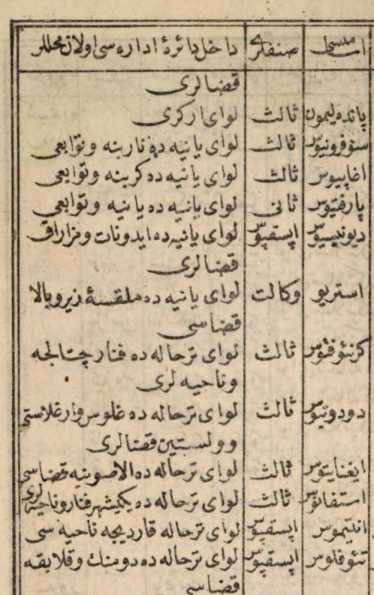 اسامیسی صنفلری داخل دائرهٔ اداره سی اولان محللر
قضالری
پانده لیمون ثالث لوای ارکری
سنوفرونیوس ثالث لوای یانیه ده ناربنه وتوابعی
اغاپیوس ثالث لوای یانیه ده کرینه وتوابعی
پارفتیوس ثانی لوای یانیه ده یانیه وتوابعی
دیونیسیوس اپسقپوس لوای یانیه ده ایدونات ومزاراق
قضالری
استریو وکالت لوای یانیه ده ملقسهٔ زیر وبالا
قضاسی
ثالث لوای ترحاله ده فنار چتالجه
وناحیه لری
دودوتیوس ثالث لوای ترحاله ده غلوس وارغلاستی
وولستین قضالری
ایغنایتوس ثالث لوای ترحاله ده الاصونیه قضاسی
استفانوس ثالث لوای ترحاله ده یکیشهر فنار وناحیه لری
انتیموس اپسقپوس لوای ترحاله قاردیجه ناحیه سی
تئوفلوس اپسقپوس لوای ترحاله ده دومنك وقلابقه
قضاسی